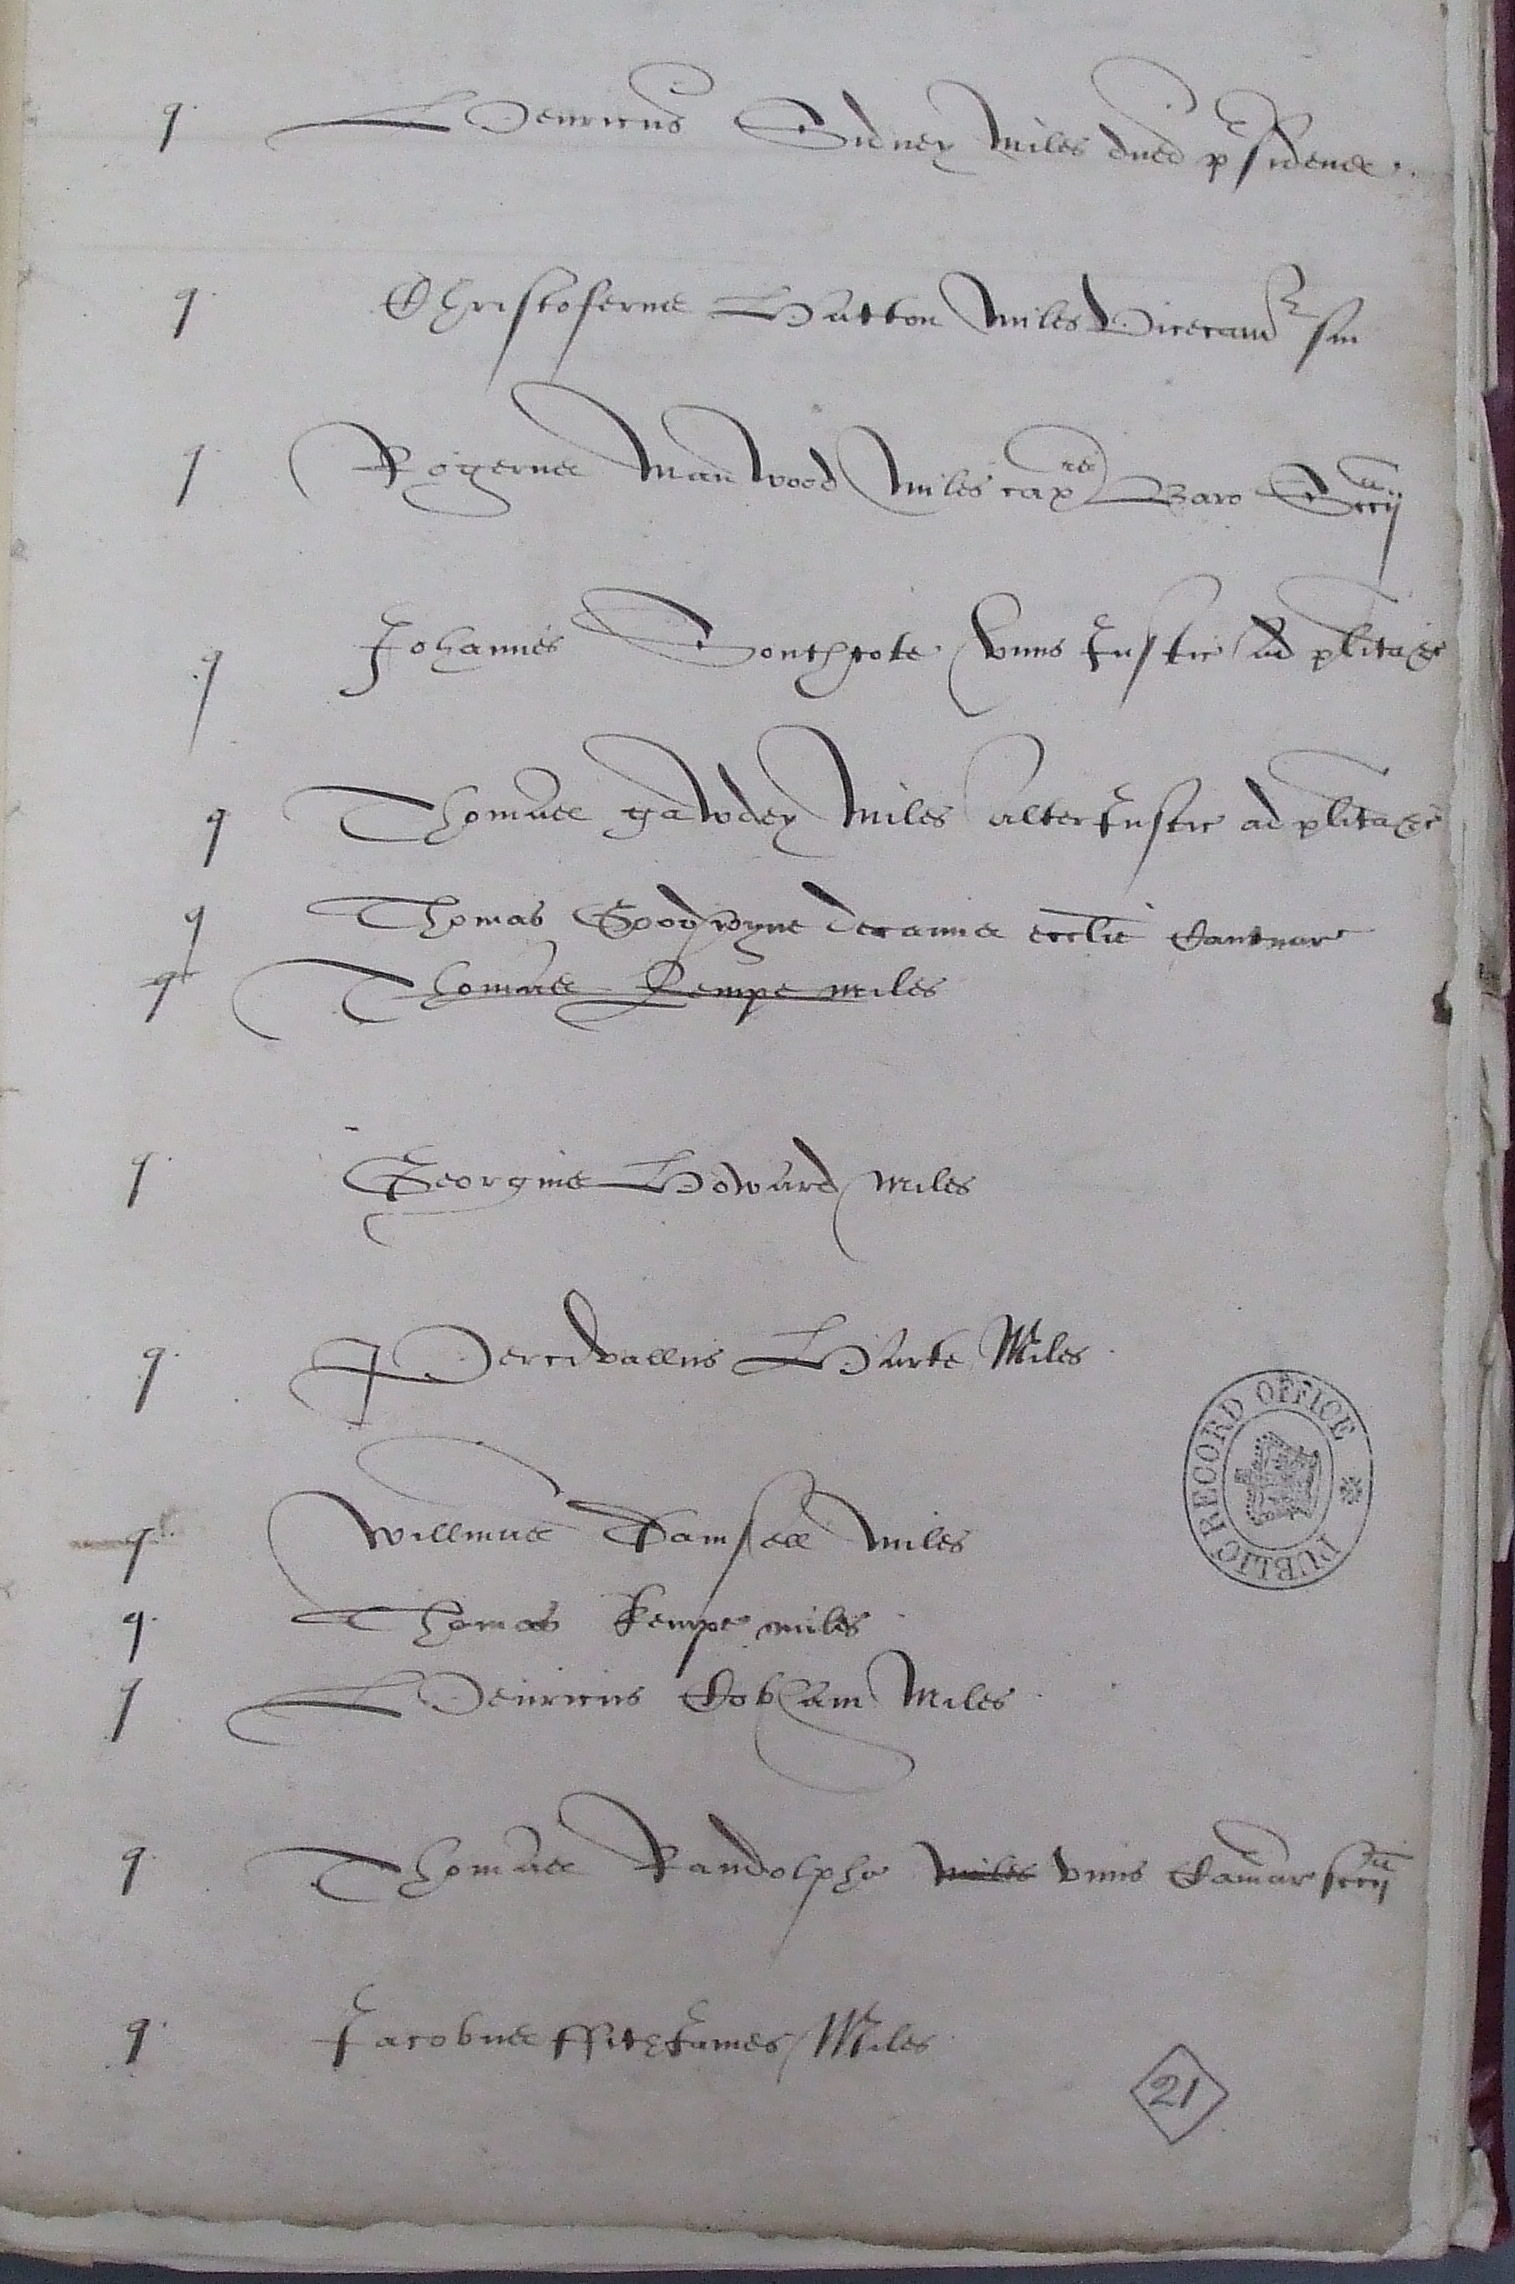 q Henricus Sidney Miles dns p̄siden̄
q Christoferus Hatton Miles Vicecam̄ sui
q Rogerus Manwood Miles cap^lis Baro Sccij
q Johannes Southcote vnus Justic ad plita &c
q Thomas Gawdey Miles alter Justic ad plita &c
q Thomas Goodwyne decanus ecclie Cantuar
q Thomas Kempe miles
q Georgius Howard Miles
q Percivallus Harte Miles
q Willmus Damsell Miles
q Thomas Kempe miles
q Henricus Cobham Miles
q Thomas Randolphe Miles vnus Camar sccij
q Jacobus ffitzJames Miles
PUBLIC RECORD OFFICE
21